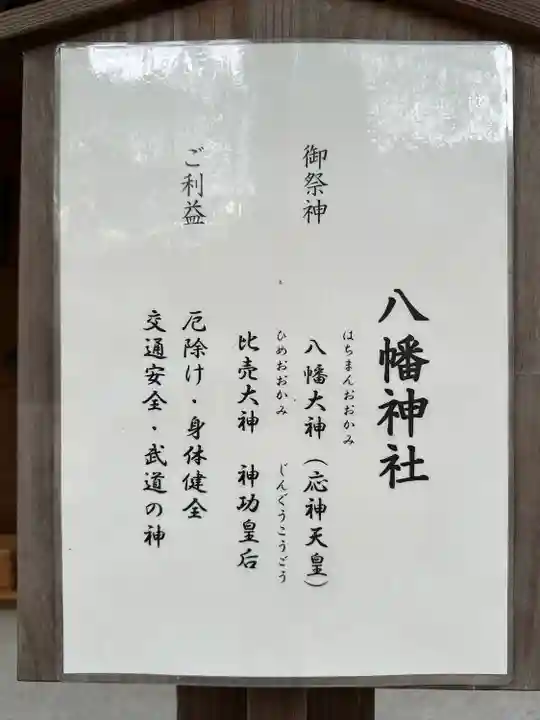 八幡神社
御祭神
はちまんおおかみ
八幡大神（応神天皇）
ひめおおかみ じんぐうこうごう
比売大神 神功皇后
ご利益
厄除け・身体健全
交通安全・武道の神